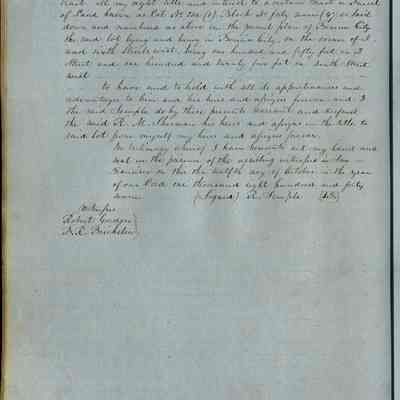 that all my right title and interest to a certain tract or parcel
of Land known as Lot No one (1) Block No fifty nine (59) as laid
down and numbered as above in the recent plan of Benicia City
the said lot lying and being in Benicia City, on the corner of I
and sixth Streets west, being one hundred and fifty feet on I
Street and one hundred and twenty five feet on Sixth Street
West
To have and to hold with all its appurtenances and
advantages to him and his heirs and assigns forever and I
the said Semple do by these presents warrant and defend
the said R. M. Sherman his heirs and assigns in the title to
said lot from myself my heirs and assigns forever.
In testimony whereof I have hereunto set my hand and
seal in the presence of the assisting witnesses in San
Francisco on this the twelfth day of October in the year
of our Lord one thousand eight hundred and forty
(Signed) R. Semple (LS)
Witnesses
Robert